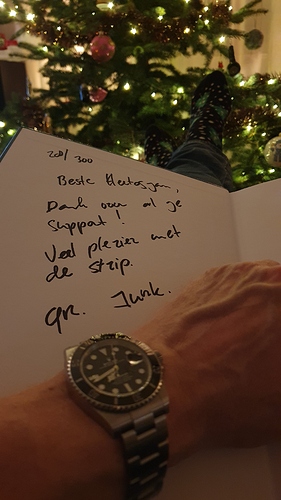 200/300
Beste
Dank voor al je
support!
Veel plezier met
de strip.
gr. Junk.